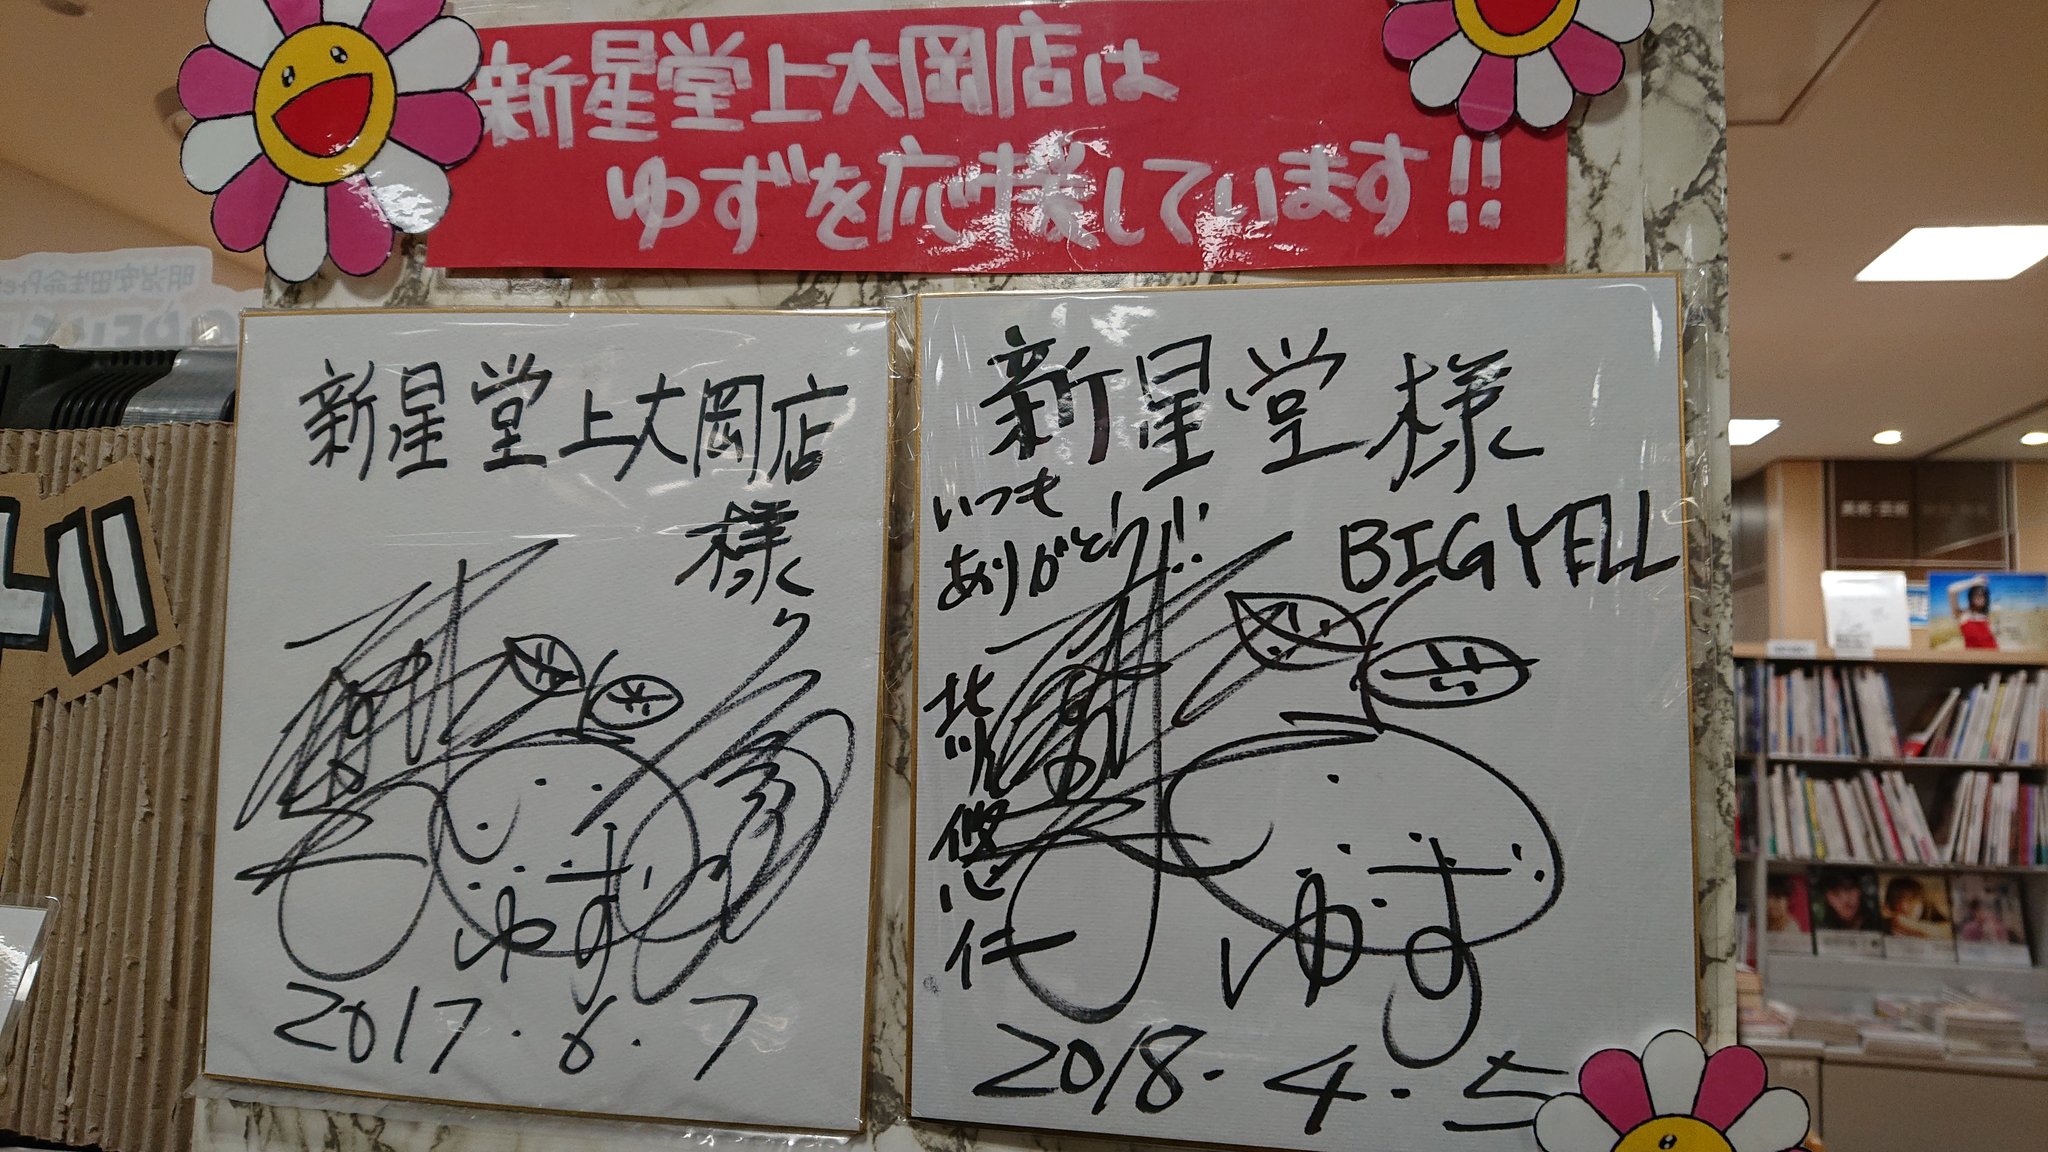 新星堂上大岡店は
ゆずを応援しています!!
新星堂上大岡店
様
ゆず
2017.6.7
新星堂様
いつも
ありがとう!!
BIG YELL
北川悠仁
ゆず
2018.4.5
明治安田生命Pre